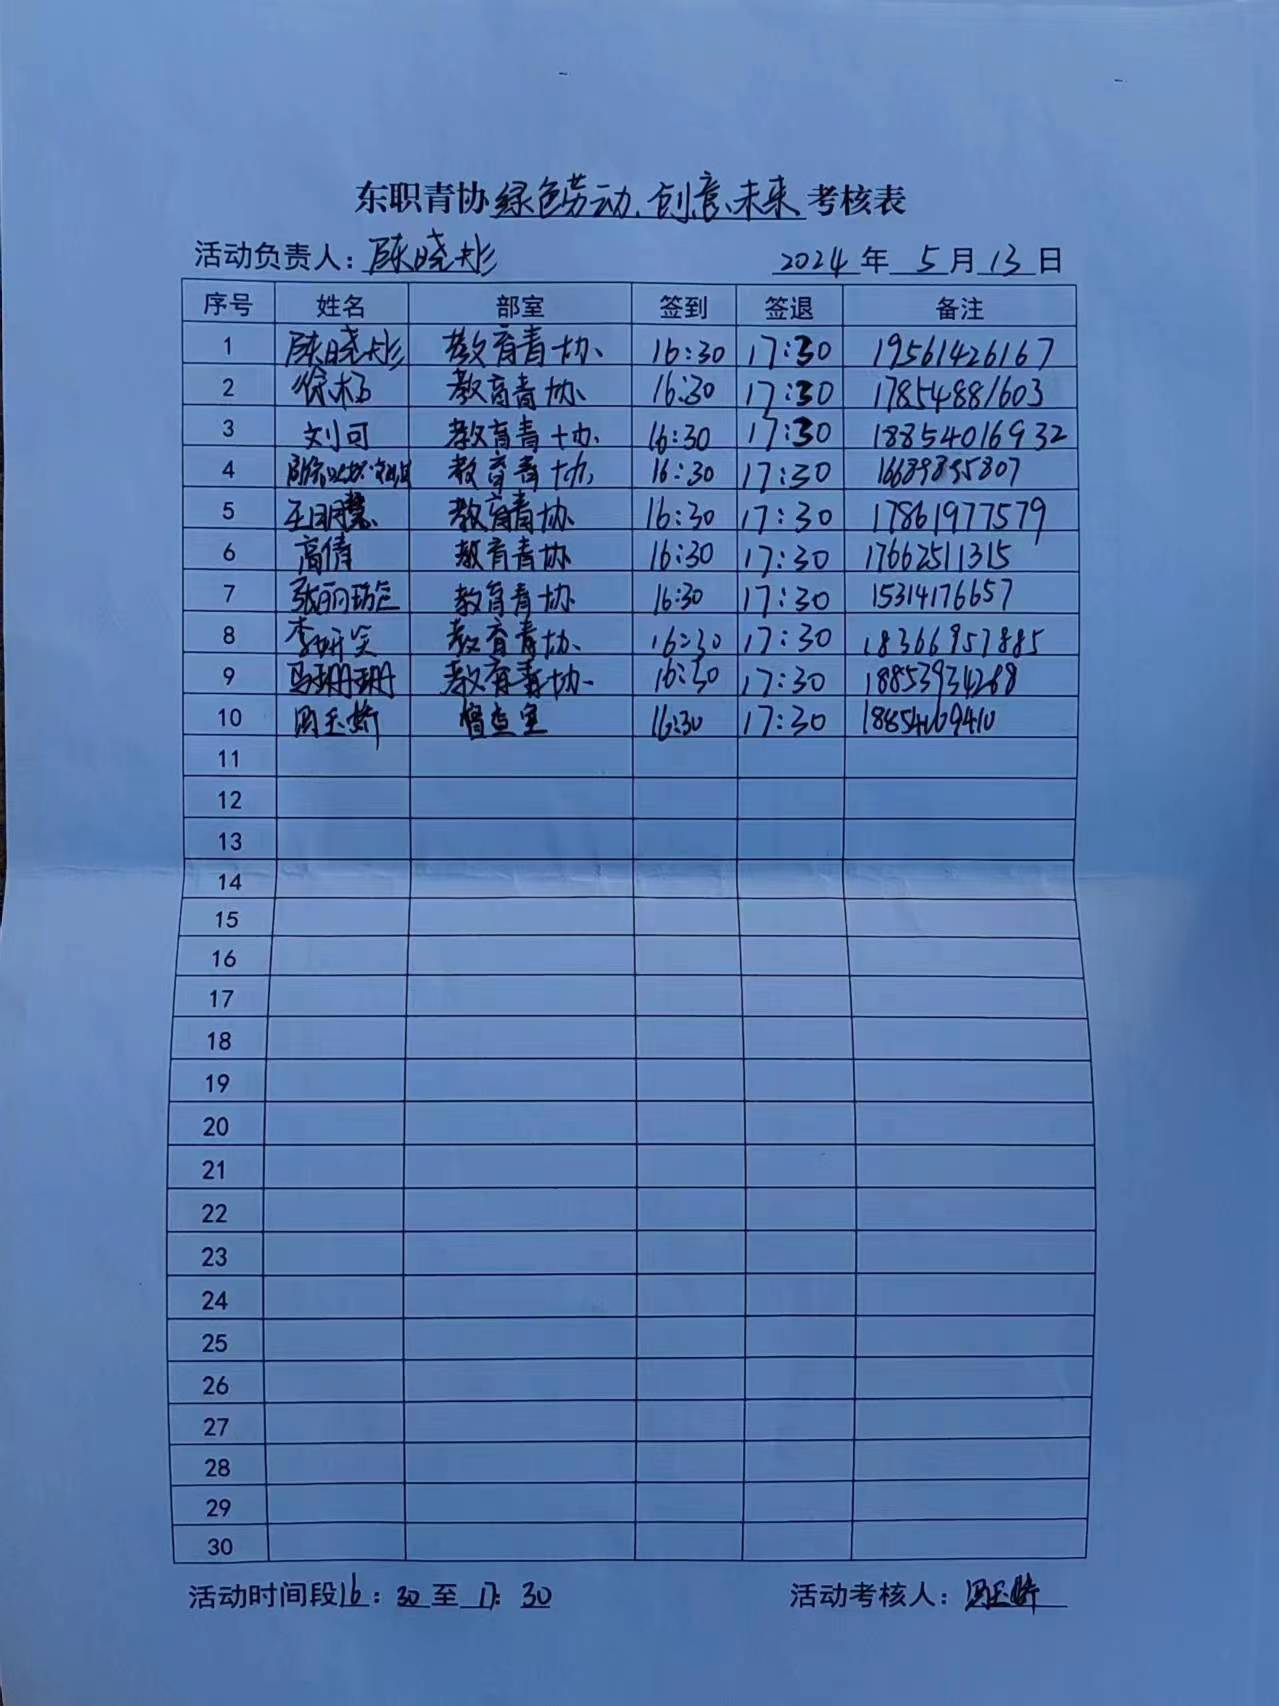 东职青协绿色劳动、创意未来考核表
活动负责人：陈晓彬 2024年5月13日
序号 姓名 部室 签到 签退 备注
1 陈晓彬 教育青协 16:30 17:30 19561426167
2 徐杨 教育青协 16:30 17:30 17854881603
3 刘可 教育青协 16:30 17:30 18854016932
4 教育青协 16:30 17:30 16689855807
5 王明慧 教育青协 16:30 17:30 17861977579
6 高倩 教育青协 16:30 17:30 17662511315
7 张丽 教育青协 16:30 17:30 15314176657
8 李妍笑 教育青协 16:30 17:30 18366957885
9 马珊珊 教育青协 16:30 17:30 18853934268
10 周玉娇 督查室 16:30 17:30
11
12
13
14
15
16
17
18
19
20
21
22
23
24
25
26
27
28
29
30
活动时间段16：30至17：30 活动考核人：周玉娇